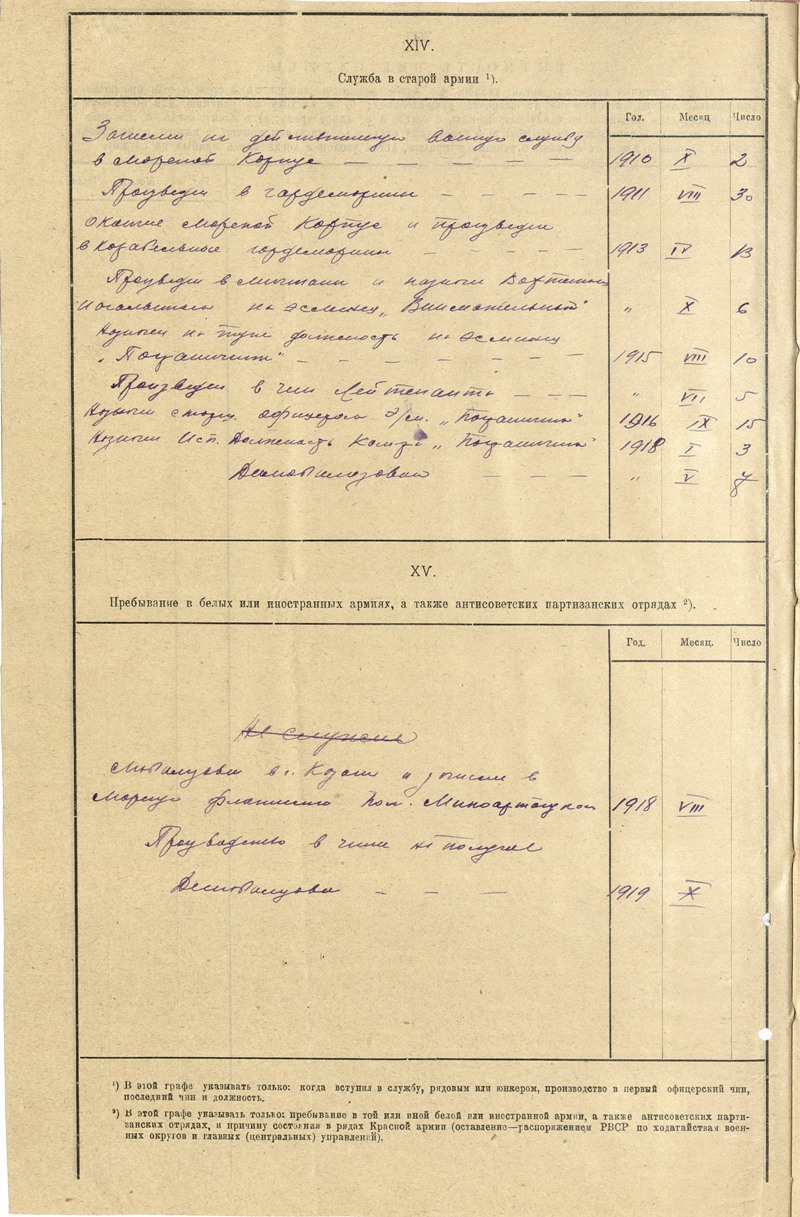 XIV.
Служба в старой армии ¹).
Год. Месяц Число
Зачислен на действительную военную службу
в Морской Корпус — — — — — 1910 X 2
Произведен в гардемарины — — — — 1911 VIII 30
Окончил Морской Корпус и произведен
в корабельные гардемарины — — — — 1913 IV
Произведен в мичмана и назначен Вахтенным
Начальником на эсминец „Внимательный" „ X 6
Назначен на ту же должность на эсминец
„Пограничник" — — — — — — 1915 VIII 10
Произведен в чин Лейтенанта — — — „ VII 5
Назначен офицером э/м. „Пограничник" 1916 IX 15
Назначен Исп. Должность „Пограничник" 1918 I 3
Демобилизован — — — „ V
XV.
Пребывание в белых или иностранных армиях, а также антисоветских партизанских отрядах ²).
Год. Месяц. Число
Не служил
Мобилизован в г. Казани и зачислен в
Морскую 1918 VIII
Производство в чины не получал
Демобилизован — — — 1919 X
¹) В этой графе указывать только: когда вступил в службу, рядовым или юнкером, производство в первый офицерский чин,
последний чин и должность.
²) В этой графе указывать только: пребывание в той или иной белой или иностранной армии, а также антисоветских парти-
занских отрядах, и причину состояния в рядах Красной армии (оставление—распоряжением РВСР по ходатайствам воен-
ных округов и главных (центральных) управлений).